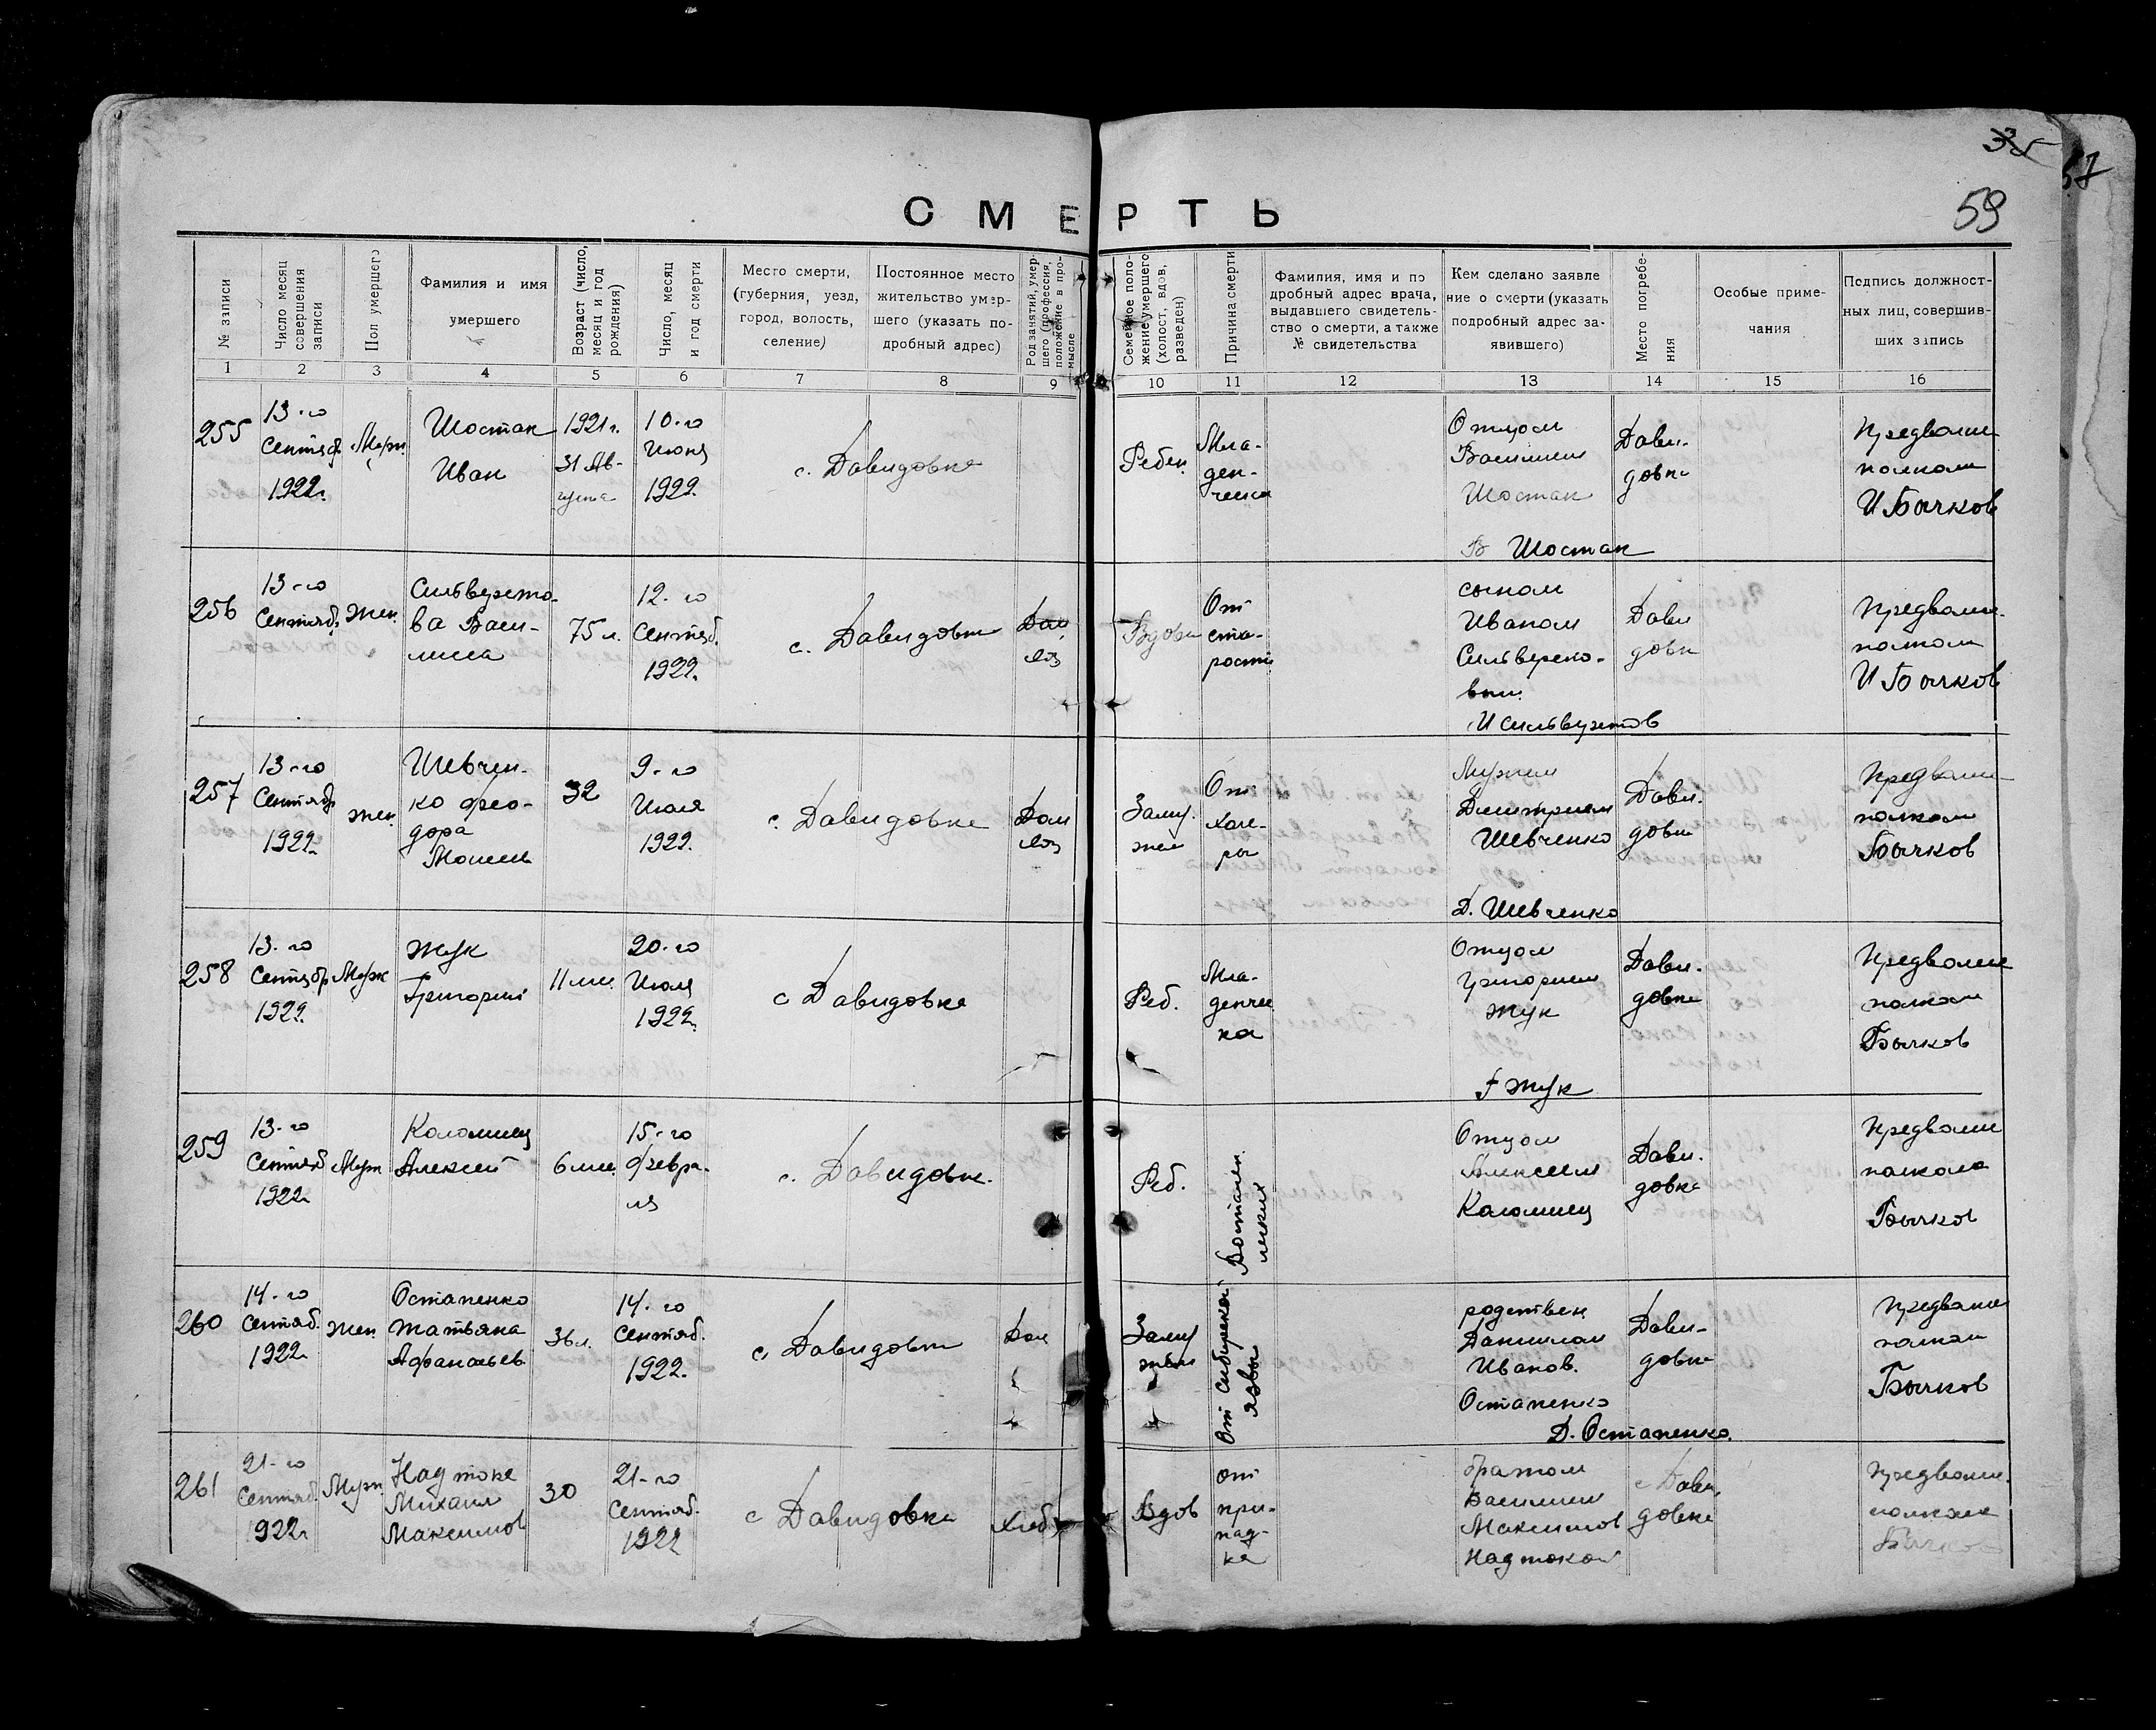 35
57
59
СМЕРТЬ
№ записи
Число месяц совершения записи
Пол умершего
Фамилия и имя
умершего
Возраст (число, месяц и год рождения)
Число, месяц и год смерти
Место смерти,
(губерния, уезд,
город, волость,
селение)
Постоянное место
жительство умер-
шего (указать по-
дробный адрес)
Род занятий, умер-
шего (профессия,
положение в про-
мысле
Семейное поло-
жение умершего
(холост, вдов,
разведен)
Причина смерти
Фамилия, имя и по
дробный адрес врача,
выдавшего свидетель-
ство о смерти, а также
№ свидетельства
Кем сделано заявле
ние о смерти (указать
подробный адрес за-
явившего)
Место погребе-
ния
Особые приме-
чания
Подпись должност-
ных лиц, совершив-
ших запись
1 2 3 4 5 6 7 8 9 10 11 12 13 14 15 16
255
13-го
Сентяб
1922г.
Муж.
Шостак
Иван
1921г.
31 Ав-
густа
10-го
Июня
1922.
с. Давидовка
Ребен.
Мла-
ден-
ческа
Отцом
Василием
Шостак
В Шостак
Дави-
довка
Предволис-
полкома
И Бычков
256
13-го
Сентяб.
Жен.
Сильверсто-
ва Васи-
лиса
75 л.
12-го
Сентяб.
1922.
с. Давидовка
Дом
хоз
Вдова
От
ста-
рости
сыном
Иваном
Сильверсто-
вым.
И Сильверстов
Дави
довка
Предволис-
полкома
И Бычков
257
13-го
Сентяб
1922г.
Жен.
Шевчен-
ко Фео-
дора
Моисеев
32
9-го
Июля
1922.
с. Давидовка
Дом
хоз
Заму-
жем
От
холе-
ры
Мужем
Дмитрием
Шевченко
Д. Шевченко
Дави-
довка
Предволис-
полкома
Бычков
258
13-го
Сентябр
1922.
Муж
Жук
Григорий
11 мес.
20-го
Июля
1922.
с Давидовка
Реб.
Мла-
денчес
ка
Отцом
Григорием
Жук
Г Жук
Дави-
довка
Предволис
полкома
Бычков
259
13-го
Сентяб
1922г
Муж
Коломиец
Алексей
6 мес.
15-го
Февра-
ля
с. Давидовка.
Реб.
Воспален.
легких
Отцом
Алексеем
Коломиец
Дави-
довка
Предволис
полкома
Бычков
260
14-го
Сентяб.
1922г.
Жен
Остапенко
Татьяна
Афанасьев
36 л.
14-го
Сентяб.
1922.
с. Давидовка
Дом
Заму
жем
От сибирской
язвы
родствен.
Даниилом
Иванов.
Остапенко
Д. Остапенко.
Дави-
довка
Предволис
полкома
Бычков
261
21-го
Сентяб.
1922г
Муж.
Надтока
Михаил
Максимов
30
21-го
Сентяб.
1922
с Давидовка
Хлеб
Вдов
от
при-
пад-
ка
братом
Василием
Максимов
Надтокой
с Дави-
довка
Предволис-
полкома
Бычков